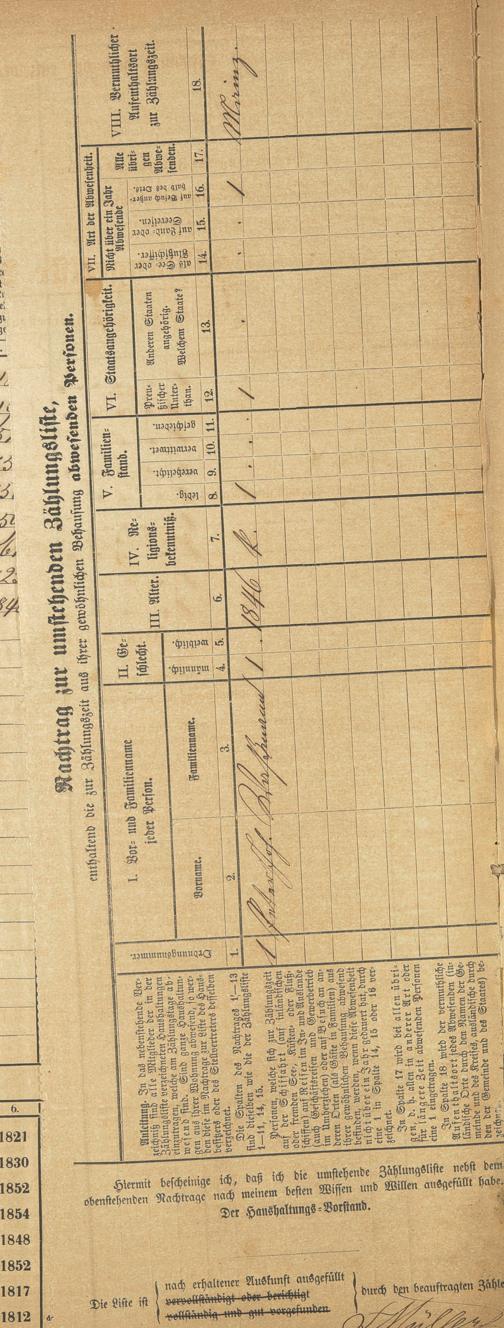 Nachtrag zur umstehenden Zählungsliste,
enthaltend die zur Zählungszeit aus ihrer gewöhnlichen Behausung abwesenden Personen.
Ordnungsnummer.
I. Vor- und Familienname
jeder Person.
Vorname.
Familienname.
II. Ge-
schlecht.
männlich.
weiblich.
III. Alter.
IV. Re-
ligions-
bekenntniß.
V. Familien-
stand.
ledig.
verehelicht.
verwittwet.
geschieden.
VI. Staatsangehörigkeit.
Preu-
ßischer
Unter-
than.
Anderen Staaten
angehörig.
Welchem Staate?
VII. Art der Abwesenheit.
Nicht über ein Jahr
Abwesende
als See- oder
Flußschiffer.
auf Land- oder
Seereisen.
auf Besuch außer-
halb des Orts.
Alle
übri-
gen
Abwe-
senden.
VIII. Vermuthlicher
Aufenthaltsort
zur Zählungszeit.
1. 2. 3. 4. 5. 6. 7. 8. 9. 10. 11. 12. 13. 14. 15. 16. 17. 18.
1 Peter Jos. 1 1846 k. 1 1 1
Anleitung. In das nebenstehende Ver-
zeichniß sind alle Mitglieder der in der
Zählungsliste verzeichneten Haushaltungen
einzutragen, welche am Zählungstage ab-
wesend sind. Sind ganze Haushaltun-
gen aus ihrer Wohnung abwesend, so wer-
den diese im Nachtrage zur Liste des Haus-
besitzers oder des Stellvertreters desselben
verzeichnet.
Die Spalten des Nachtrages 1—13
sind dieselben wie die der Zählungsliste
1—11, 14, 15.
Personen, welche sich zur Zählungszeit
auf der Schifffahrt (auf inländischen
oder fremden See-, Küsten- oder Fluß-
schiffen) auf Reisen im In- und Auslande
(auch Geschäftsreisen und Gewerbebetrieb
im Umherziehen) oder auf Besuch an an-
deren Orten (als Gäste in Familien) aus
ihrer gewöhnlichen Behausung abwesend
befinden, werden, wenn diese Abwesenheit
nicht über ein Jahr gedauert hat, durch
eine 1 in Spalte 14, 15 oder 16 ver-
zeichnet.
In Spalte 17 wird bei allen übri-
gen, d. h. allen in anderer Art oder
für längere Zeit abwesenden Personen
eine 1 eingetragen.
In Spalte 18 wird der vermuthliche
Aufenthaltsort jedes Abwesenden (in-
ländische Orte durch den Namen der Ge-
meinde und des Kreises, ausländische durch
den der Gemeinde und des Staates) be-
zeichnet.
6.
1821
1830
1852
1854
1848
1852
1817
1812
Hiermit bescheinige ich, daß ich die umstehende Zählungsliste nebst dem
obenstehenden Nachtrage nach meinem besten Wissen und Willen ausgefüllt habe.
Der Haushaltungs-Vorstand.
Die Liste ist
nach erhaltener Auskunft ausgefüllt
vervollständigt oder berichtigt
vollständig und gut vorgefunden
durch den beauftragten Zähle
Müller